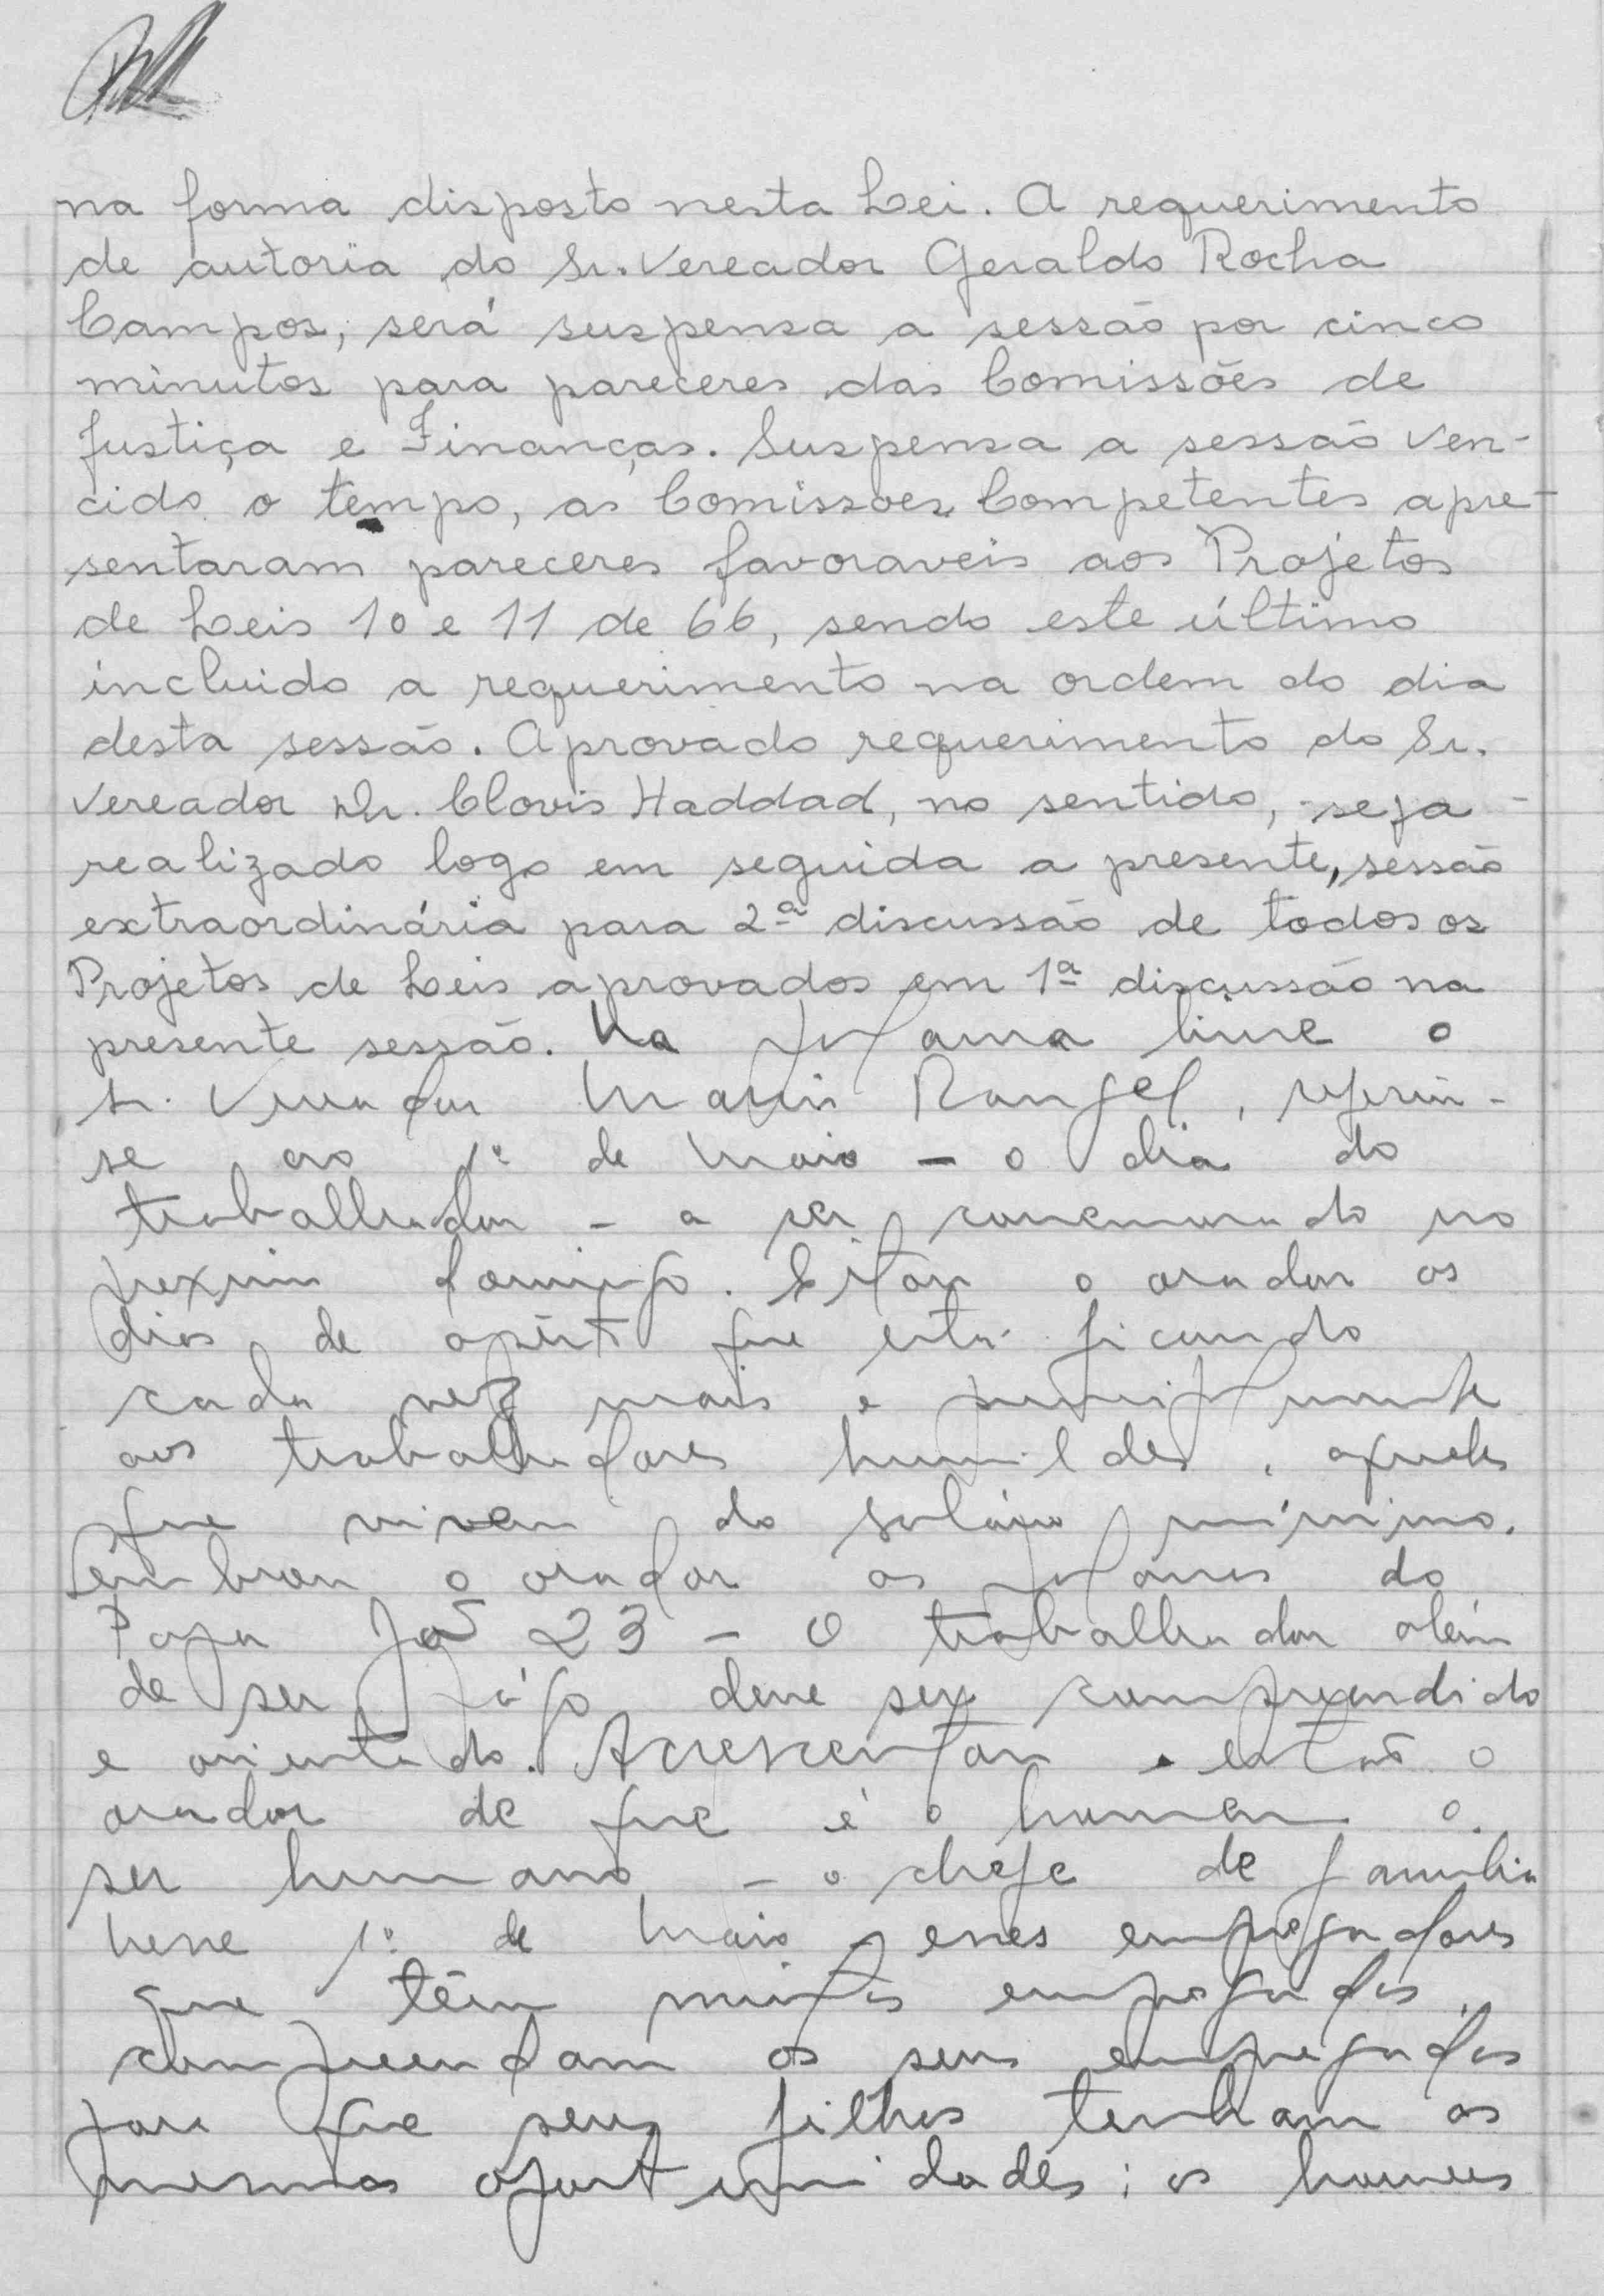 na forma disposto nesta Lei. A requerimento
de autoria do Sr. Vereador Geraldo Rocha
Campos, será suspensa a sessão por cinco
minutos para pareceres das Comissões de
Justiça e Finanças. Suspensa a sessão ven-
cido o tempo, as Comissões Competentes apre-
sentaram pareceres favoraveis aos Projetos
de Leis 10 e 11 de 66, sendo este último
incluido a requerimento na ordem do dia
desta sessão. Aprovado requerimento do Sr.
Vereador Dr. Clovis Haddad, no sentido, seja
realizado logo em seguida a presente, sessão
extraordinária para 2ª discussão de todos os
Projetos de Leis aprovados em 1ª discussão na
presente sessão. Na palavra livre o
Sr. Vereador Mario Rangel, referiu-
se ao 1º de Maio - o dia do
trabalhador - a ser comemorado no
proximo domingo. Citou o orador os
dias de apêrto que está ficando
cada vez mais e principalmente
aos trabalhadores humildes, aqueles
que vivem do salário mínimo.
Lembrou o orador as palavras do
Papa João 23 - O trabalhador além
de ser pago, deve ser compreendido
e orientado. Acrescentou então o
orador de que é o homem o
ser humano - o chefe de familia
nesse 1º de Maio, esses empregadores
que têm muitos empregados,
compreendam os seus empregados
para que seus filhos tenham as
mesmas oportunidades; os homens